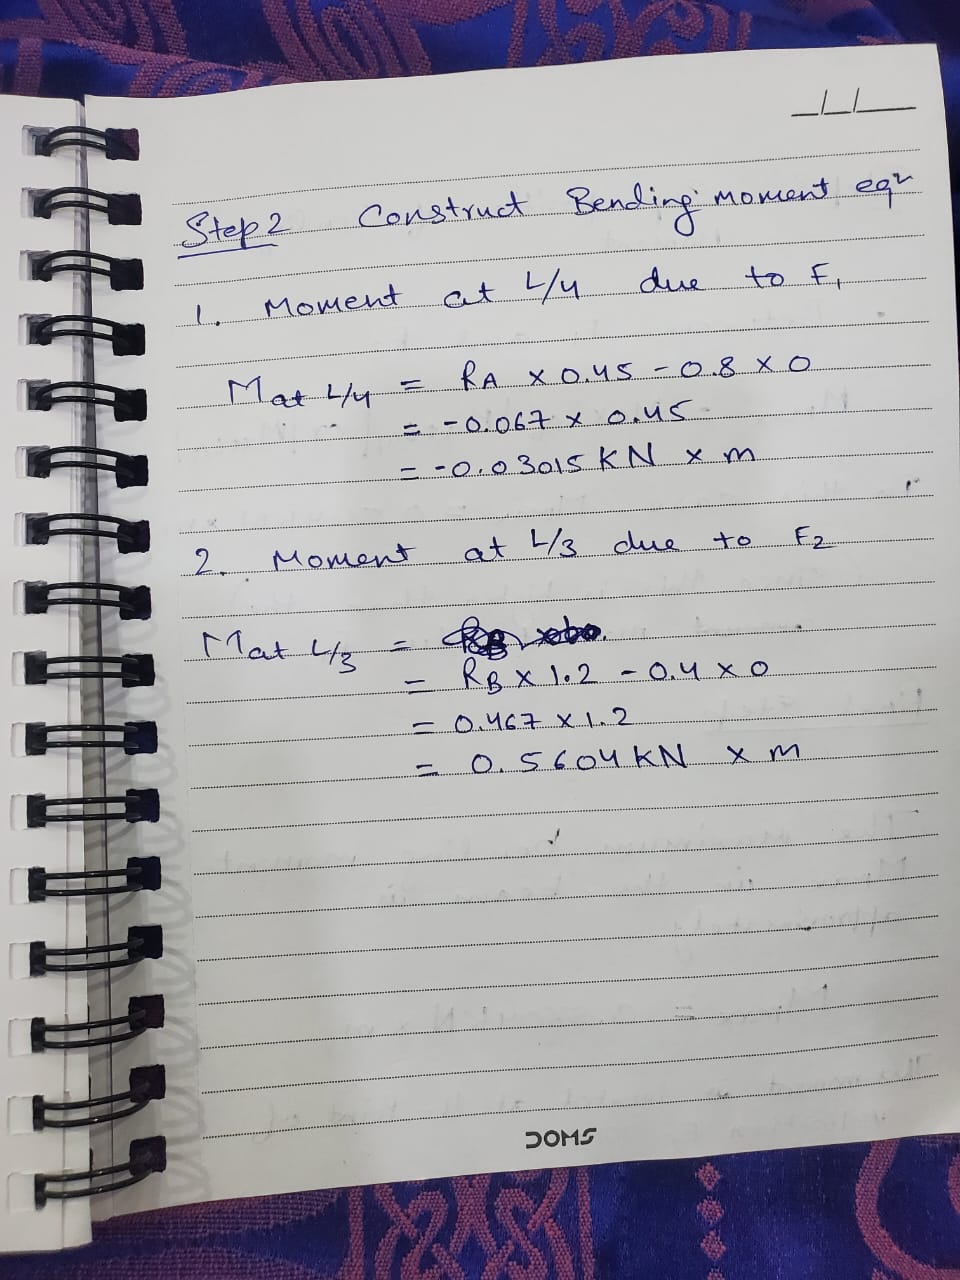 Step 2 Construct Bending moment eqn
1. Moment at L/4 due to F1
M at L/4 = RA x 0.45 - 0.8 x 0
= -0.067 x 0.45
= -0.03015 KN x m
2. Moment at L/3 due to F2
M at L/3 =
= RB x 1.2 - 0.4 x 0
= 0.467 x 1.2
= 0.5604 KN x m
DOMS